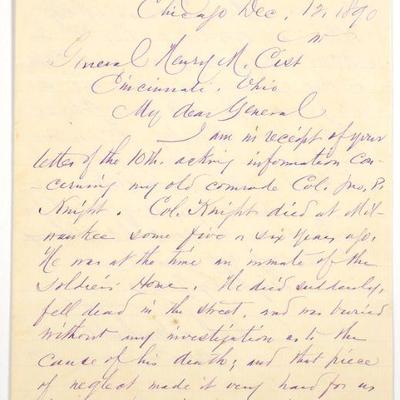 Chicago Dec. 12, 1890
General Henry M. Cist
Cincinnati, Ohio
My dear General
I am in receipt of your
letter of the 10th. asking information con-
-cerning my old comrade Col. Jno. P.
Knight. Col. Knight died at Mil-
waukee some five or six years ago.
He was at the time an inmate of the
Soldiers Home. He died suddenly,
fell dead in the street, and was buried
without any investigation as to the
cause of his death; and that piece
of neglect made it very hard for us